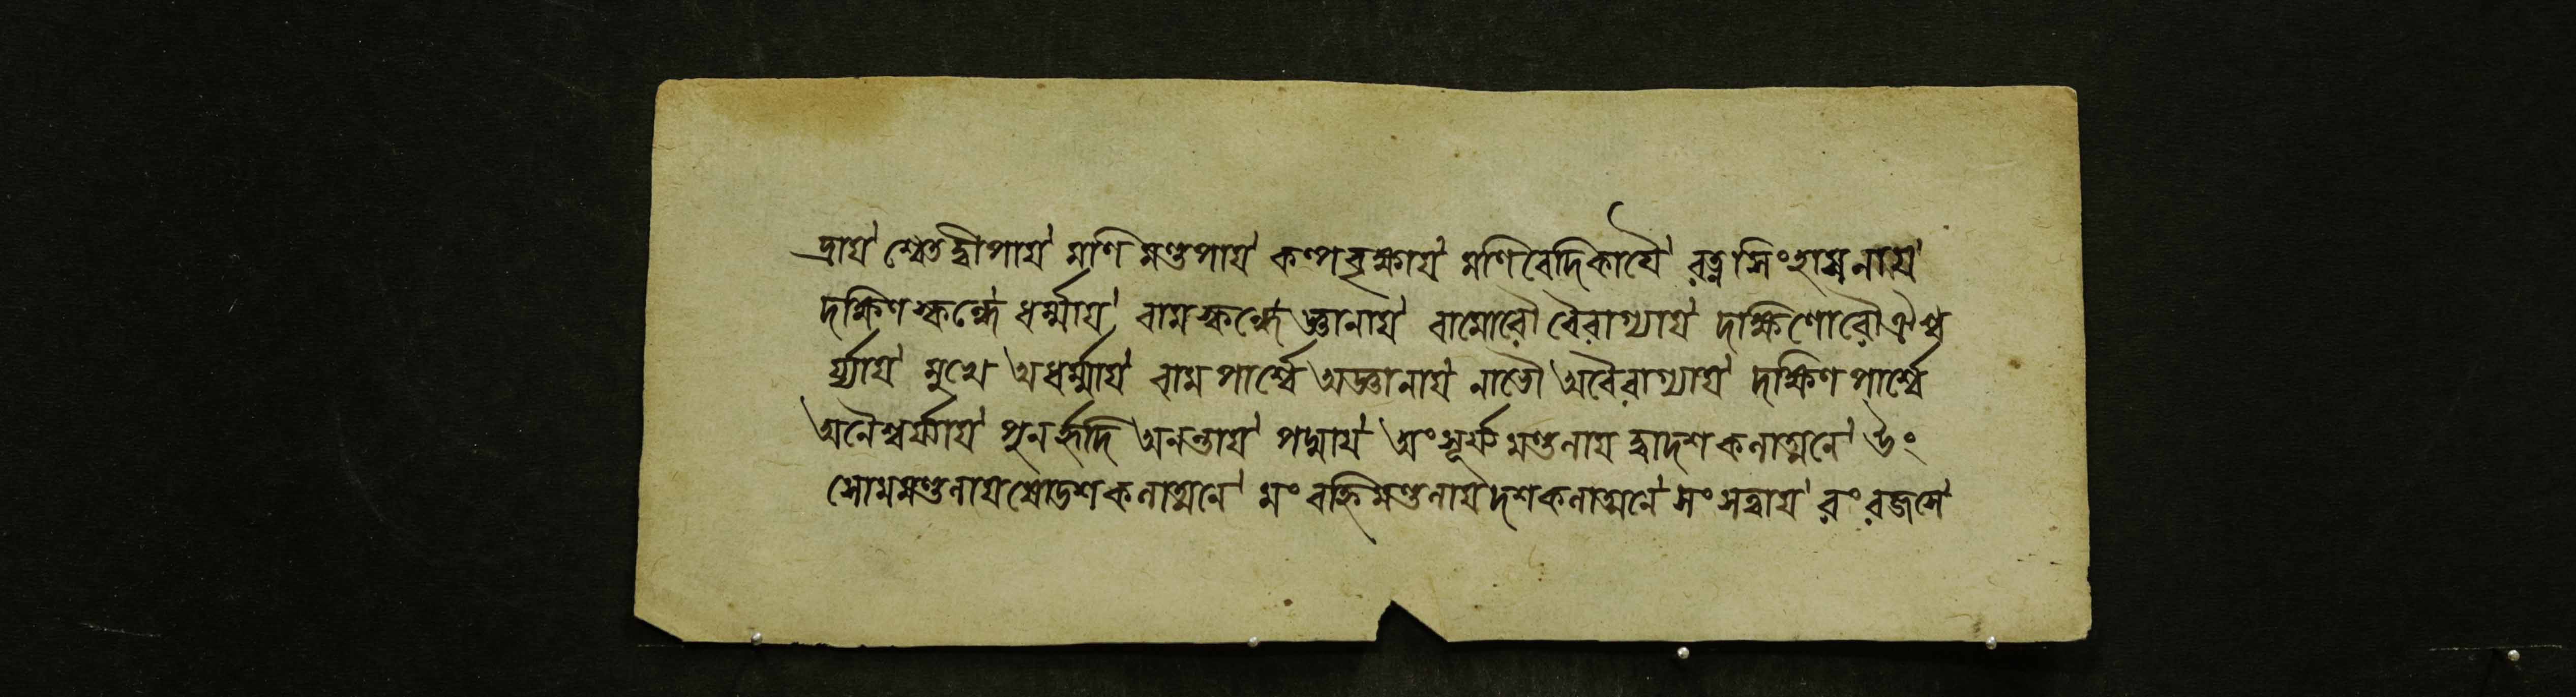 দ্রায় শ্বেতদ্বীপায় মণিমণ্ডপায় কল্পবৃক্ষায় মণিবেদিকায়ৈ রত্নসিংহাসনায়
দক্ষিণস্কন্ধে ধর্ম্মায় বামস্কন্ধে জ্ঞানায় বামোরৌ বৈরাগ্যায় দক্ষিণোরৌ ঐশ্ব
র্য্যায় মুখে অধর্ম্মায় বামপার্শ্বে অজ্ঞানায় নাভৌ অবৈরাগ্যায় দক্ষিণপার্শ্বে
অনৈশ্বর্য্যায় পুনর্হৃদি অনন্তায় পদ্মায় অং সূর্য্যমণ্ডলায় দ্বাদশকলাত্মনে উং
সোমমণ্ডলায় ষোডশকলাত্মনে মং বহ্নিমণ্ডলায় দশকলাত্মনে সং সত্বায় রং রজসে